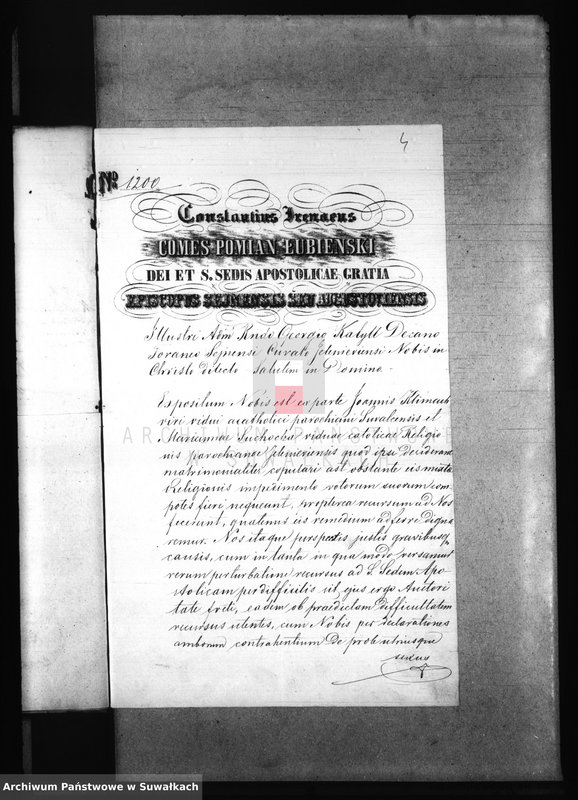 4
No 1200
Constantius Irenaeus
COMES POMIAN ŁUBIENSKI
DEI ET S. SEDIS APOSTOLICAE GRATIA
EPISCOPUS SEJNENSIS SEU AUGUSTOVIENSIS
Illustri Adm Rndo Georgio Katyll Decano
Foraneo Sejnensi Curato Jelenievensi Nobis in
Christo dilecto Salutem in Domino
Expositum Nobis est ex parte Joannis Klimcuk
viri vidui acatholici parochiani Suvalcensis et
Mariannae Suchocka viduae catolicae Religio
nis parochianae Jelenievensis quod ipsi desiderant
matrimonialiter copulari ast obstante eis mixtae
Religionis impedimento votorum suorum com
potes fieri nequeunt, propterea recursum ad Nos
fecerunt, quatenus iis remedium adferre digna
remur. Nos itaque perspectis justis gravibusq
causis, cum in tanta in qua modo versamur
rerum perturbatione recursus ad S. Sedem Apo
stolicam perdifficilis sit, ejus ergo Auctori
tate freti, eadem ob praedictam difficultatem
recursus utentes, cum Nobis per declarationes
amborum contrahentium de prole utriusque
sexus
ARCHIWUM PAŃSTWOWE
W SUWAŁKACH
Archiwum Państwowe w Suwałkach